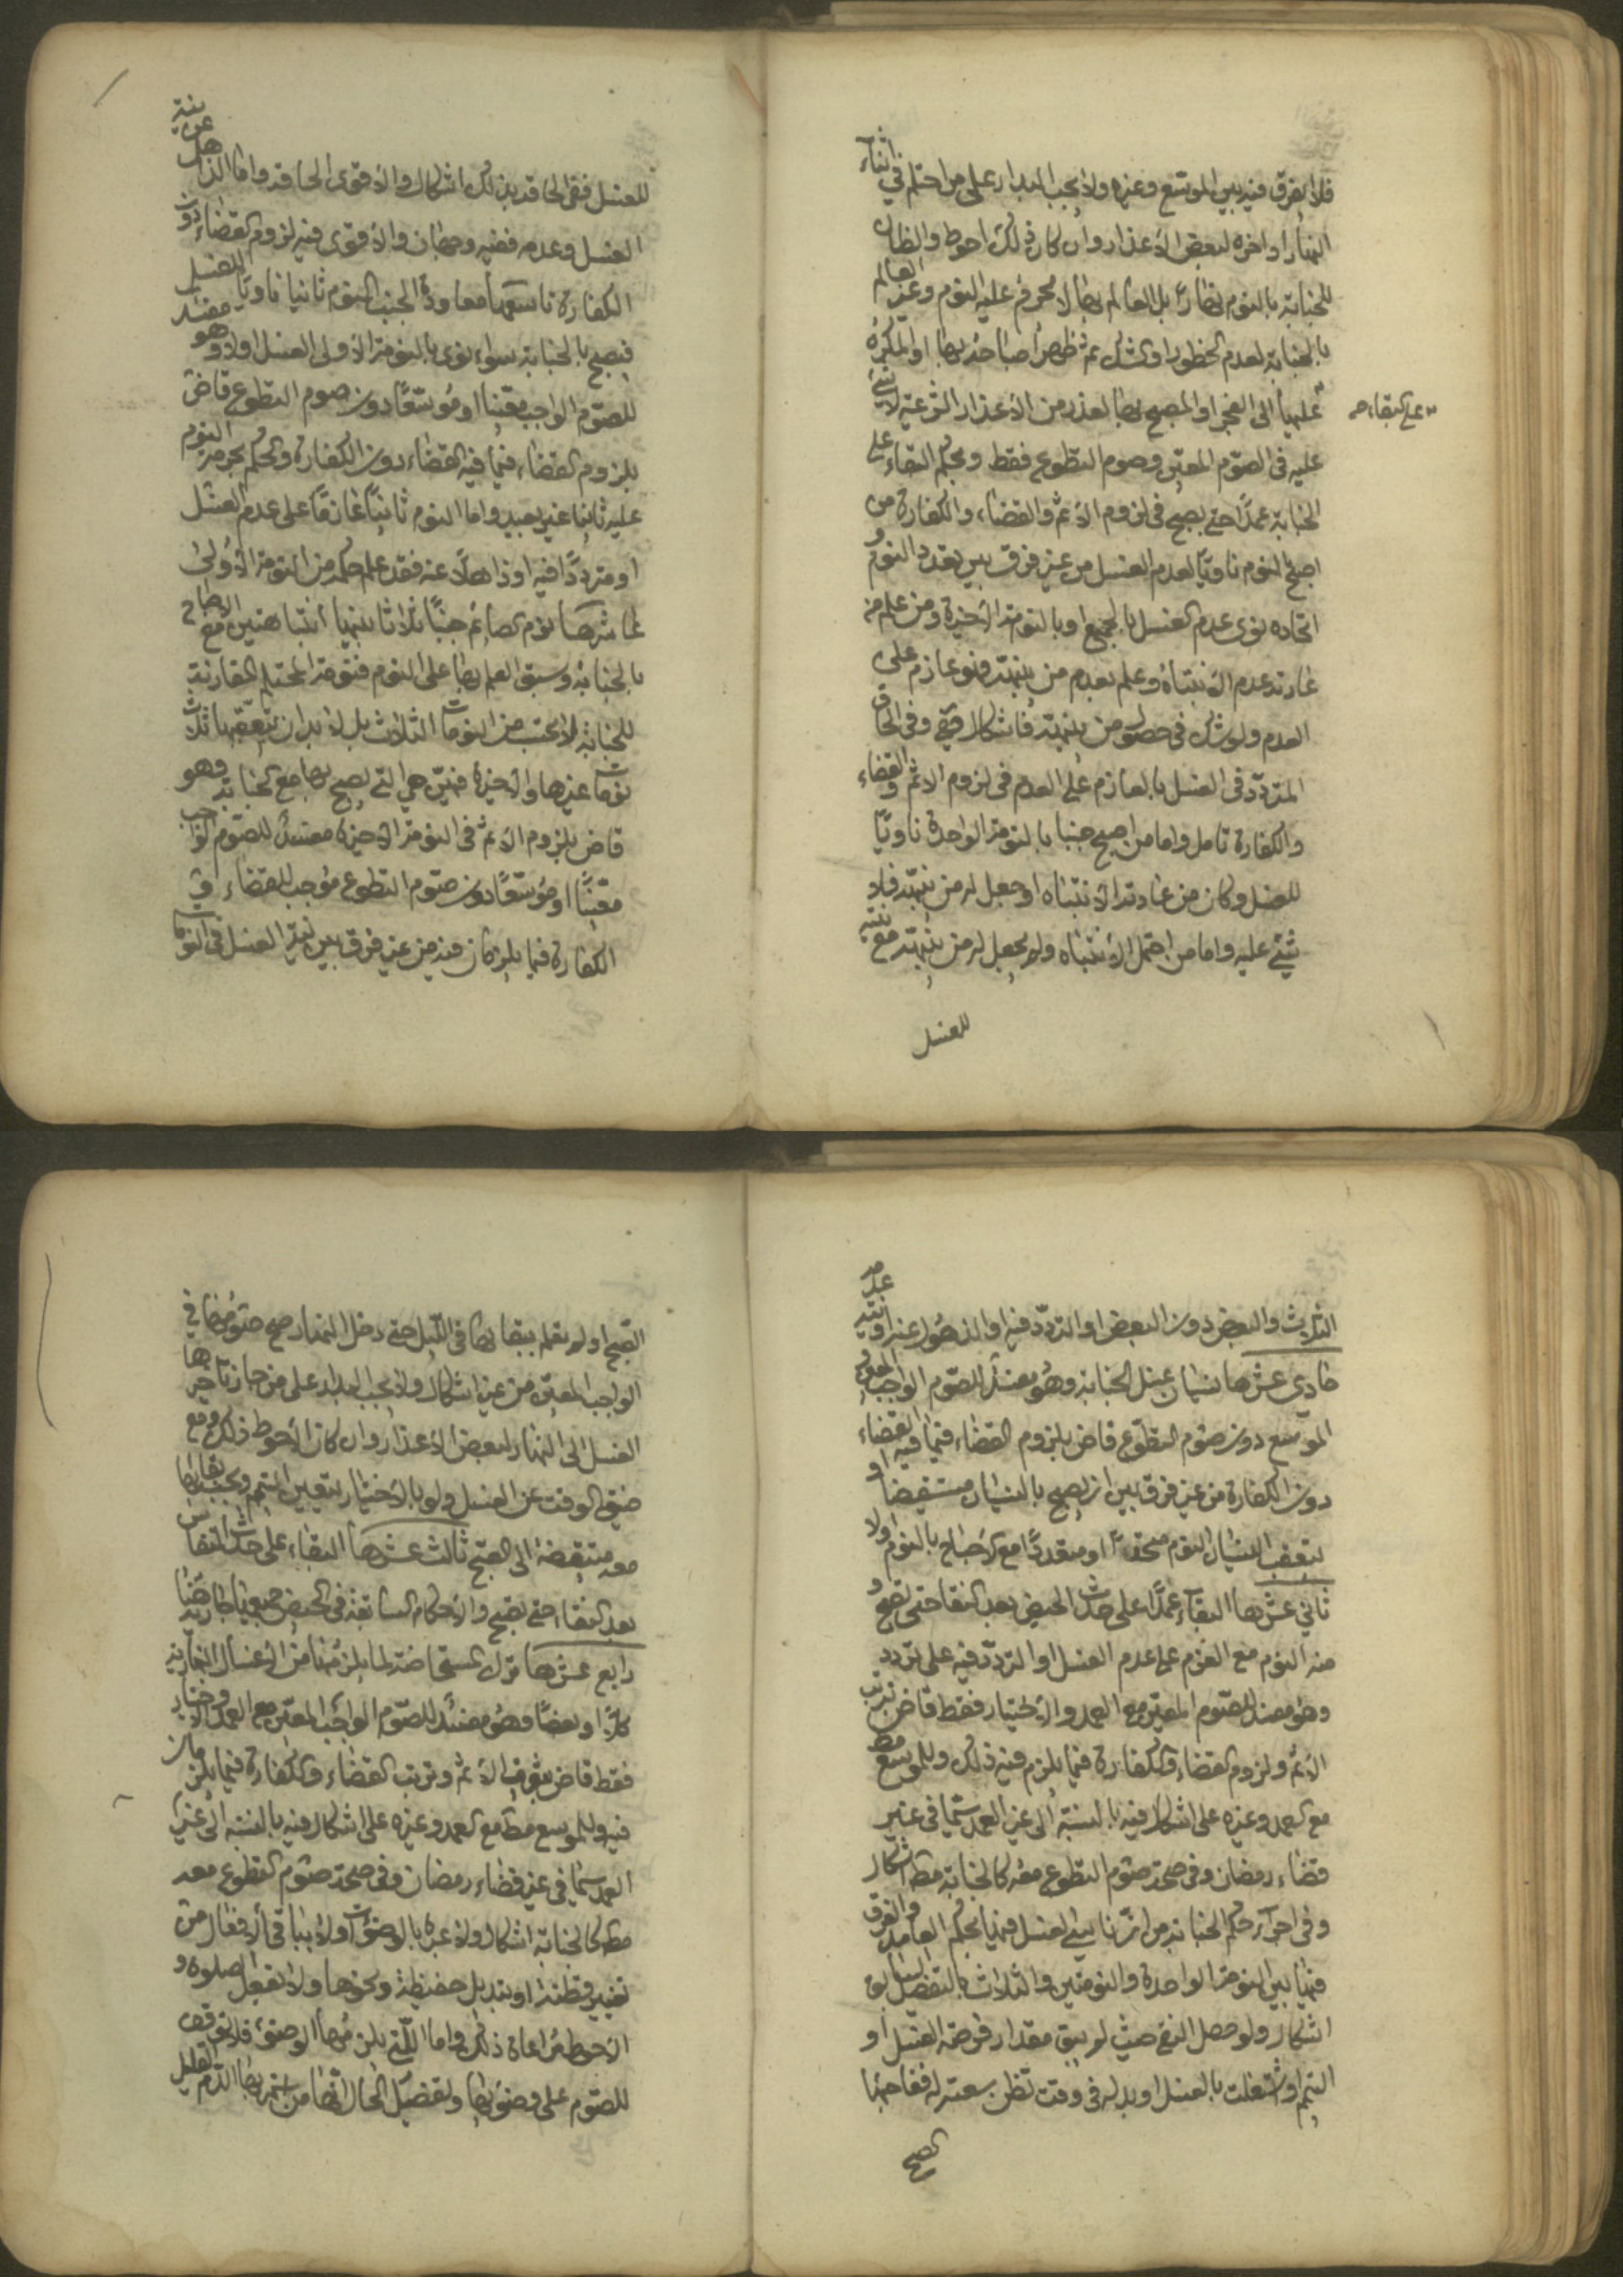 فلا يفرق فيه بين الموسع وغيره ولا يجب البدار على من احتلم في اثناء
النهار او اخره لبعض الأعذار وان كان ذلك احوط والظان
للجنابة بالنوم نهارا بل العالم بها لا يحرم عليه النوم وغير العالم
بالجنابة لعدم الخطور او لشك ثم ظهر اصباحه بها او المكره
عليها الى الفجر او المصبح بها لعذر من الأعذار الشرعية لا شئ
على البقاء
عليه في الصوم المعين وصوم التطوع فقط وبحكم البقاء على
الجنابة عمدًا حتى يصبح في لزوم الأثم والقضاء والكفارة من
اصبح بالنوم ناويًا لعدم الغسل من غير فرق بين تعدد النوم و
اتحاده نوى عدم الغسل بالجميع او بالنومة الأخيرة ومن علم من
عادته عدم الأنتباه وعلم بعدم من ينبهه فنوعازم على
العدم ولو شك في حصول من ينبهه فاشكال وفي الحاق
المتردد في الغسل بالعازم على العدم في لزوم الاثم والقضاء
والكفارة تامل واما من اصبح جنبا بالنومة الواحدة ناويًا
للغسل وكان من عادته الأنتباه او جعل له من ينبهه فلا
شئ عليه واما من احتمل الأنتباه ولم يجعل له من ينبهه مع نيته
للغسل
للغسل ففي الحاقه بذلك اشكال والأقوى الحاقه واما الذاهل عن نية
الغسل وعدمه ففيه وجهان والأقوى فيه لزوم القضاء دون
الكفارة تاسعها معاودة الجنب النوم ثانيا ناويًا للغسل
فيصبح بالجنابة سواء نوى بالنومة الأولى الغسل اولا وهو مفسد
للصوم الواجب معينا او موسعًا دون صوم التطوع قاض
بلزوم القضاء فيما فيه القضاء دون الكفارة والحكم بحرمة النوم
عليه ثانيا غير بعيد واما النوم ثانيًا عازمًا على عدم الغسل
او مترددًا فيه او ذاهلًا عنه فقد علم حكمه من النومة الأولى
عاشرها نوم الصائم جنبًا ثلاثا بينها انتباهتين مع الاصباح
بالجنابة وسبق العلم بها على النوم فنومة المحتلم المقارنة
للجنابة لا تحتسب من النومات الثلاث بل لا بد ان يتعقبها ثلاث
نومات غيرها والأخيرة منهن هي التي يصبح بها مع الجنابة وهو
قاض بلزوم الأثم في النومة الأخيرة مفسد للصوم الواجب
معينًا او موسعًا دون صوم التطوع موجب للقضاء و
الكفارة فيما يلزمان فيه من غير فرق بين نية الغسل في النومات
الثلاث والبعض دون البعض او التردد فيه او الذهول عنه او نية عدمه
حادي عشرها نسيان غسل الجنابة وهو مفسد للصوم الواجب المعين
الموسع دون صوم التطوع قاض بلزوم القضاء فيما فيه القضاء
دون الكفارة من غير فرق بين ان يصبح بالنسيان مستيقضا او
يتعقب النسيان النوم متحدًا او متعددًا مع الاصباح بالنوم اولا
ثاني عشرها البقاء عمدًا على حدث الحيض بعد النقاء حتى يصبح و
منه النوم مع العزم على عدم الغسل او التردد فيه على تردد
وهو مفسد للصوم المعين مع العمد والاختيار فقط قاض بترتب
الأثم ولزوم القضاء والكفارة فيما يلزم فيه ذلك وللموسع مط
مع العمد وغيره على اشكال فيه بالنسبة الى غير العمد سيما في غير
قضاء رمضان وفي صحة صوم التطوع معه كالجنابة مط اشكال
وفي اجراء حكم الجنابة من ان ناسي الغسل فيها بحكم العامد والفرق
فيها بين النومة الواحدة والنومتين والثلاث بالتفضيل السابق
اشكال ولو حصل النقاء حيث لم يبق مقدار فرصة الغسل او
التيمم او اشتغلت بالغسل او بدله في وقت تظن سعته له ففاجئها
الصبح
الصبح او لم تعلم بنقائها في الليل حتى دخل النهار صح صومها في
الواجب المعين من غير اشكال ولا يجب البدار على من جاز تأخيرها
الغسل الى النهار لبعض الأعذار وان كان الأحوط ذلك ومع
ضيق الوقت عن الغسل ولو بالأختيار يتعين التيمم ويجب بقائها
معه متيقضة الى الصبح ثالث عشرها البقاء على حدث النفاس
بعد النقاء حتى يصبح والأحكام السابقة في الحيض جميعها جارية هنا
رابع عشرها ترك المستحاضة لما يلزمها من الأغسال النهارية
كلاً او بعضًا وهو مفسد للصوم الواجب المعين مع العمد والاختيار
فقط قاض بثبوت الأثم وترتب القضاء والكفارة فيما يلزمان
فيه وللموسع مط مع العمد وغيره على اشكال فيه بالنسبة الى غير
العمد سيما في غير قضاء رمضان وفي صحة صوم التطوع معه
مط كالجنابة اشكال ولا عبرة بالوضوءات ولا بباقي الأفعال من
تغيير قطنة او تبديل حفيظة ونحوها ولا بفعل الصلوة و
الأحوط مراعاة ذلك واما التي يلزمها الوضوء فلا يتوقف
للصوم على وضوئها وتفصيل الحال انها من استمر بها الدم القليل